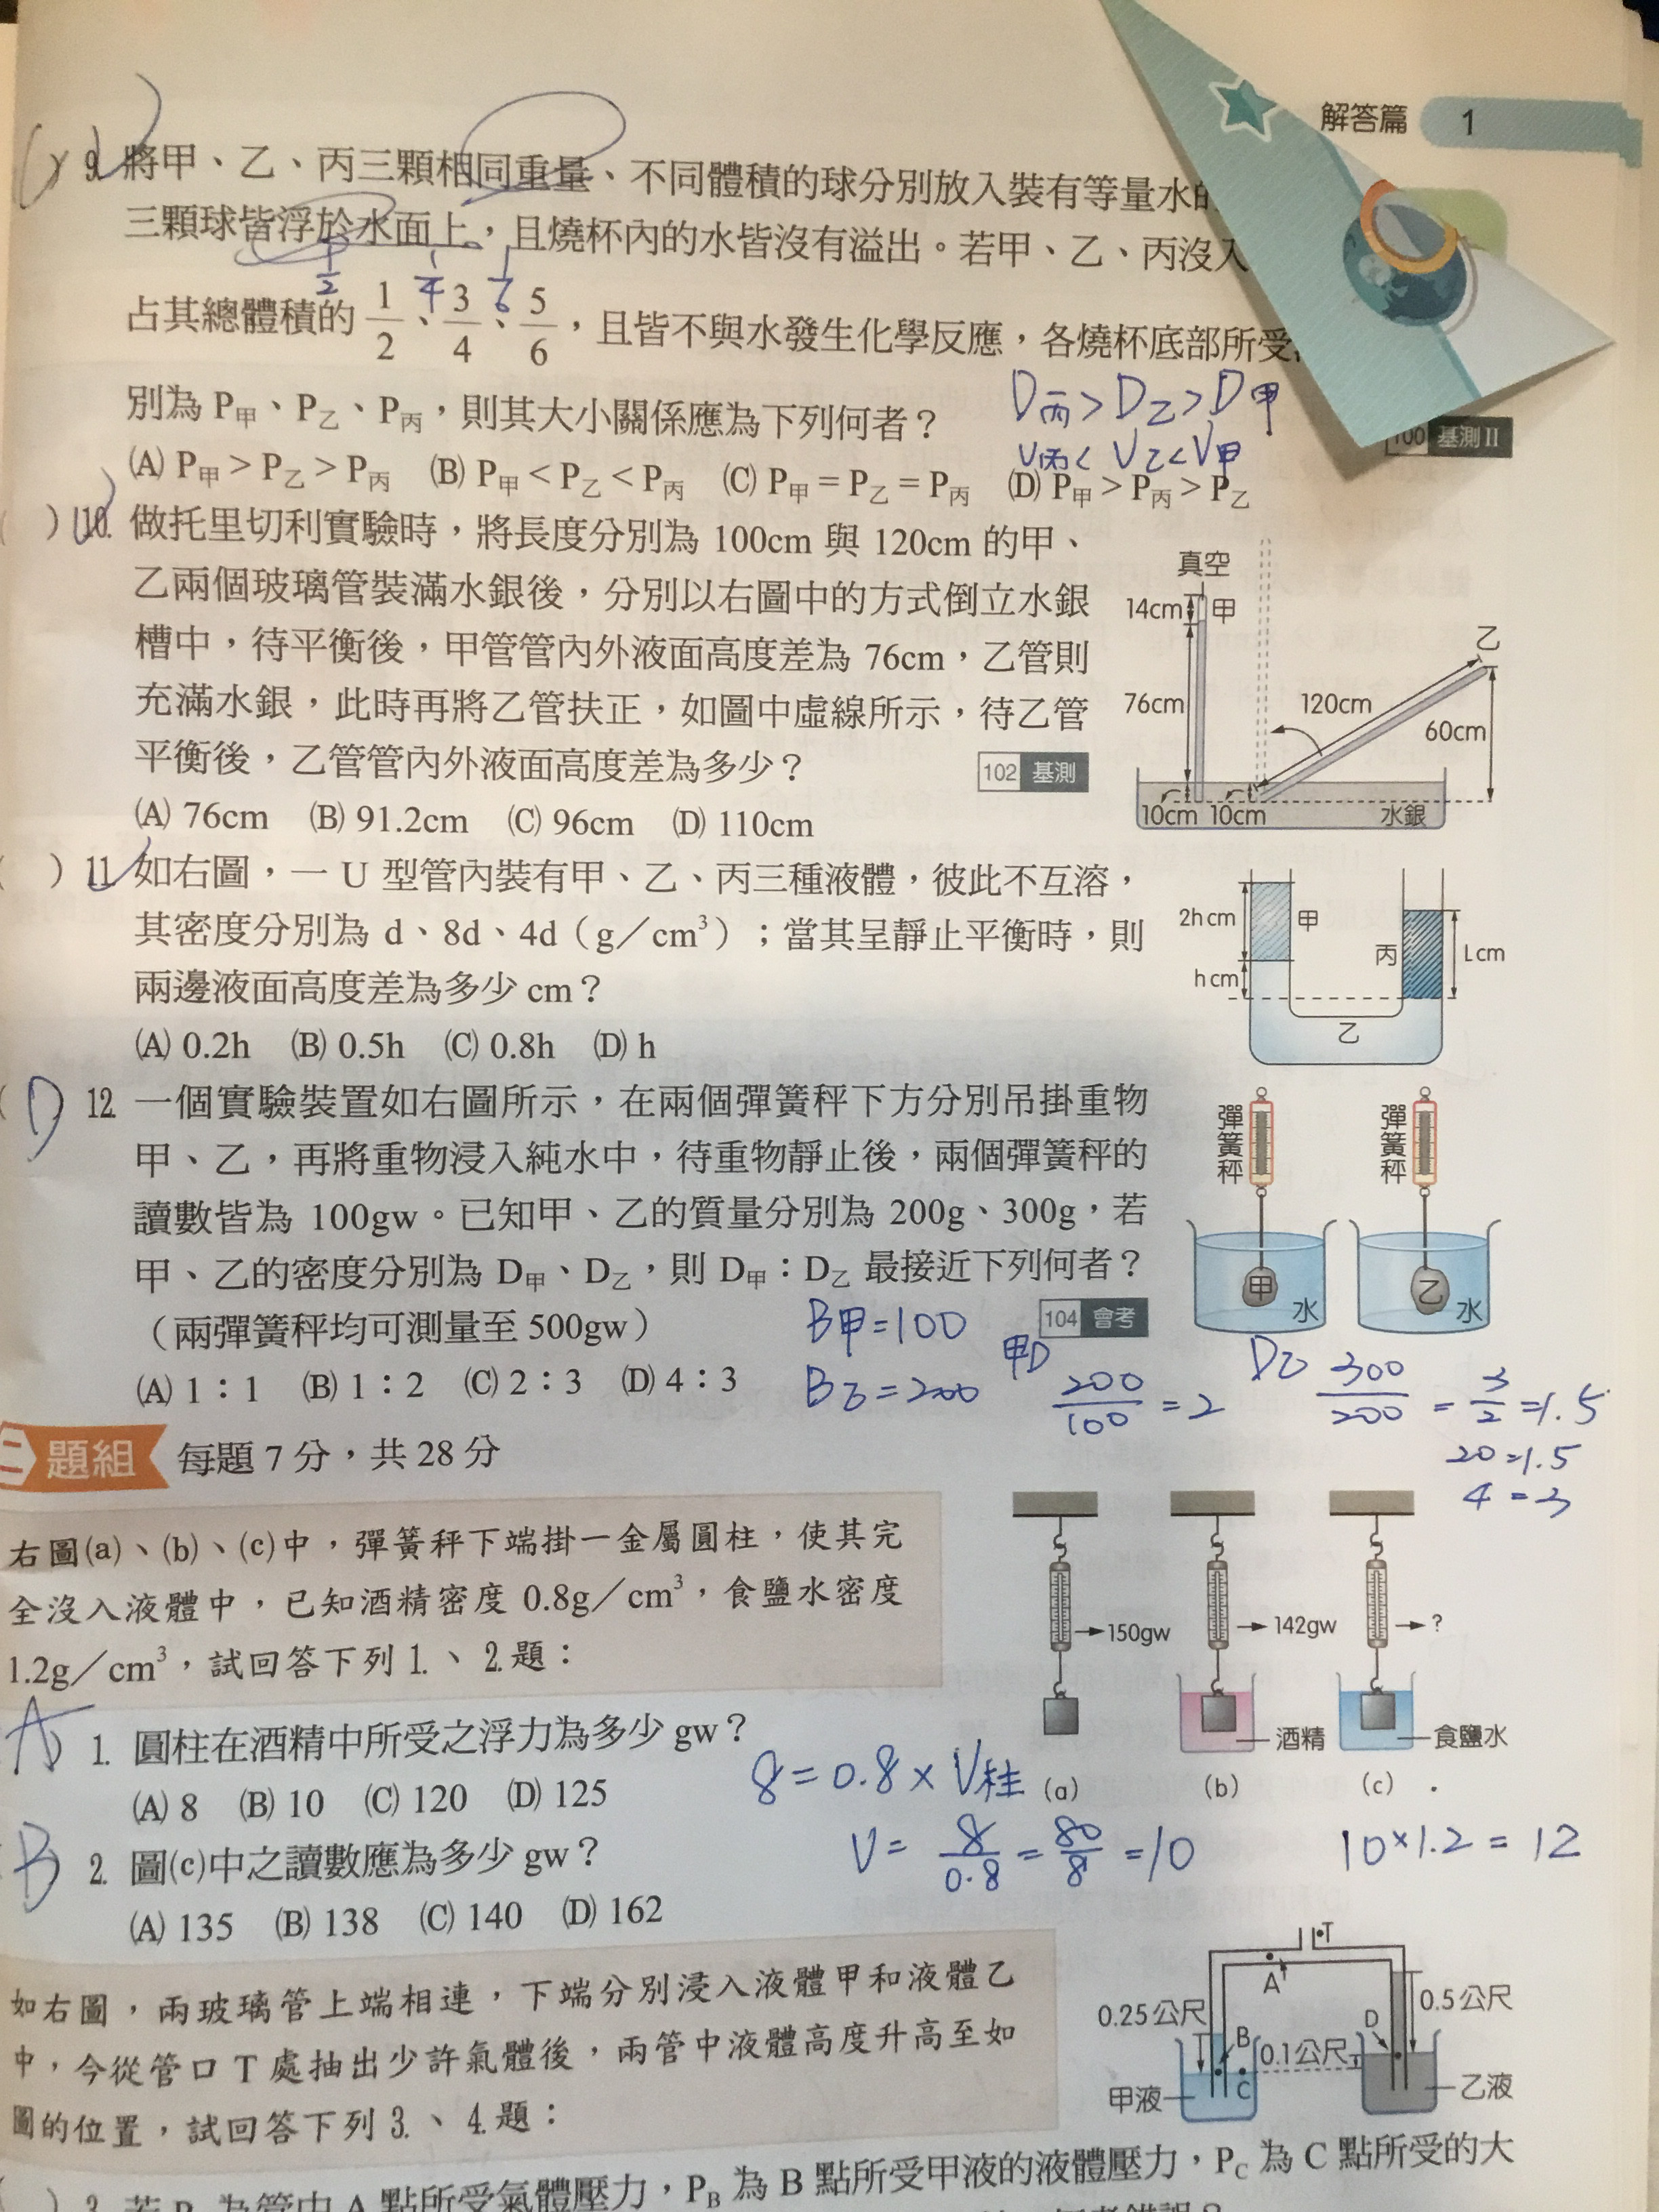 解答篇 1
9. 將甲、乙、丙三顆相同重量、不同體積的球分別放入裝有等量水的
三顆球皆浮於水面上，且燒杯內的水皆沒有溢出。若甲、乙、丙沒入
1/2 1/4 1/6
占其總體積的 1/2、3/4、5/6，且皆不與水發生化學反應，各燒杯底部所受
別為 P甲、P乙、P丙，則其大小關係應為下列何者？
D丙 > D乙 > D甲
V丙 < V乙 < V甲
100 基測II
(A) P甲 > P乙 > P丙 (B) P甲 < P乙 < P丙 (C) P甲 = P乙 = P丙 (D) P甲 > P丙 > P乙
( ) 10. 做托里切利實驗時，將長度分別為 100cm 與 120cm 的甲、
乙兩個玻璃管裝滿水銀後，分別以右圖中的方式倒立水銀
槽中，待平衡後，甲管管內外液面高度差為 76cm，乙管則
充滿水銀，此時再將乙管扶正，如圖中虛線所示，待乙管
平衡後，乙管管內外液面高度差為多少？ 102 基測
(A) 76cm (B) 91.2cm (C) 96cm (D) 110cm
真空
14cm 甲
乙
76cm
120cm
60cm
10cm 10cm 水銀
( ) 11. 如右圖，一 U 型管內裝有甲、乙、丙三種液體，彼此不互溶，
其密度分別為 d、8d、4d（g／cm³）；當其呈靜止平衡時，則
兩邊液面高度差為多少 cm？
(A) 0.2h (B) 0.5h (C) 0.8h (D) h
2h cm 甲
丙 L cm
h cm
乙
( D ) 12. 一個實驗裝置如右圖所示，在兩個彈簧秤下方分別吊掛重物
甲、乙，再將重物浸入純水中，待重物靜止後，兩個彈簧秤的
讀數皆為 100gw。已知甲、乙的質量分別為 200g、300g，若
甲、乙的密度分別為 D甲、D乙，則 D甲：D乙 最接近下列何者？
（兩彈簧秤均可測量至 500gw） 104 會考
(A) 1：1 (B) 1：2 (C) 2：3 (D) 4：3
彈簧秤 彈簧秤
甲 水 乙 水
B甲=100
B乙=200
甲D 200/100 = 2
D乙 300/200 = 3/2 = 1.5
20=1.5
4=3
二 題組 每題 7 分，共 28 分
右圖(a)、(b)、(c)中，彈簧秤下端掛一金屬圓柱，使其完
全沒入液體中，已知酒精密度 0.8g／cm³，食鹽水密度
1.2g／cm³，試回答下列 1.、2.題：
150gw 142gw ?
酒精 食鹽水
(a) (b) (c)
A 1. 圓柱在酒精中所受之浮力為多少 gw？
(A) 8 (B) 10 (C) 120 (D) 125
8 = 0.8 × V柱
V = 8/0.8 = 80/8 = 10
10×1.2 = 12
B 2. 圖(c)中之讀數應為多少 gw？
(A) 135 (B) 138 (C) 140 (D) 162
如右圖，兩玻璃管上端相連，下端分別浸入液體甲和液體乙
中，今從管口 T 處抽出少許氣體後，兩管中液體高度升高至如
圖的位置，試回答下列 3.、4.題：
T
A
0.25公尺 0.5公尺
B D
0.1公尺
C
甲液 乙液
) 3. 若 為管中 A 點所受氣體壓力，PB 為 B 點所受甲液的液體壓力，PC 為 C 點所受的大